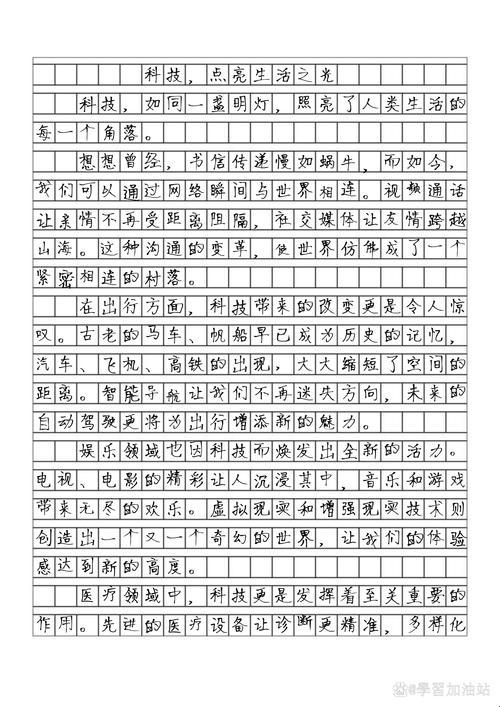 科技，点亮生活之光
科技，如同一盏明灯，照亮了人类生活的
每一个角落。
想想曾经，书信传递慢如蜗牛，而如今，
我们可以通过网络瞬间与世界相连。视频通话
让亲情不再受距离阻隔，社交媒体让友情跨越
山海。这种沟通的变革，使世界仿佛成了一个
紧密相连的村落。
在出行方面，科技带来的改变更是令人惊
叹。古老的马车、帆船早已成为历史的记忆，
汽车、飞机、高铁的出现，大大缩短了空间的
距离。智能导航让我们不再迷失方向，未来的
自动驾驶更将为出行增添新的魅力。
娱乐领域也因科技而焕发出全新的活力。
电视、电影的精彩让人沉浸其中，音乐和游戏
带来无尽的欢乐。虚拟现实和增强现实技术则
创造出一个又一个奇幻的世界，让我们的体验
感达到新的高度。
医疗领域中，科技更是发挥着至关重要的
作用。先进的医疗设备让诊断更精准，多样化
@學習加油站